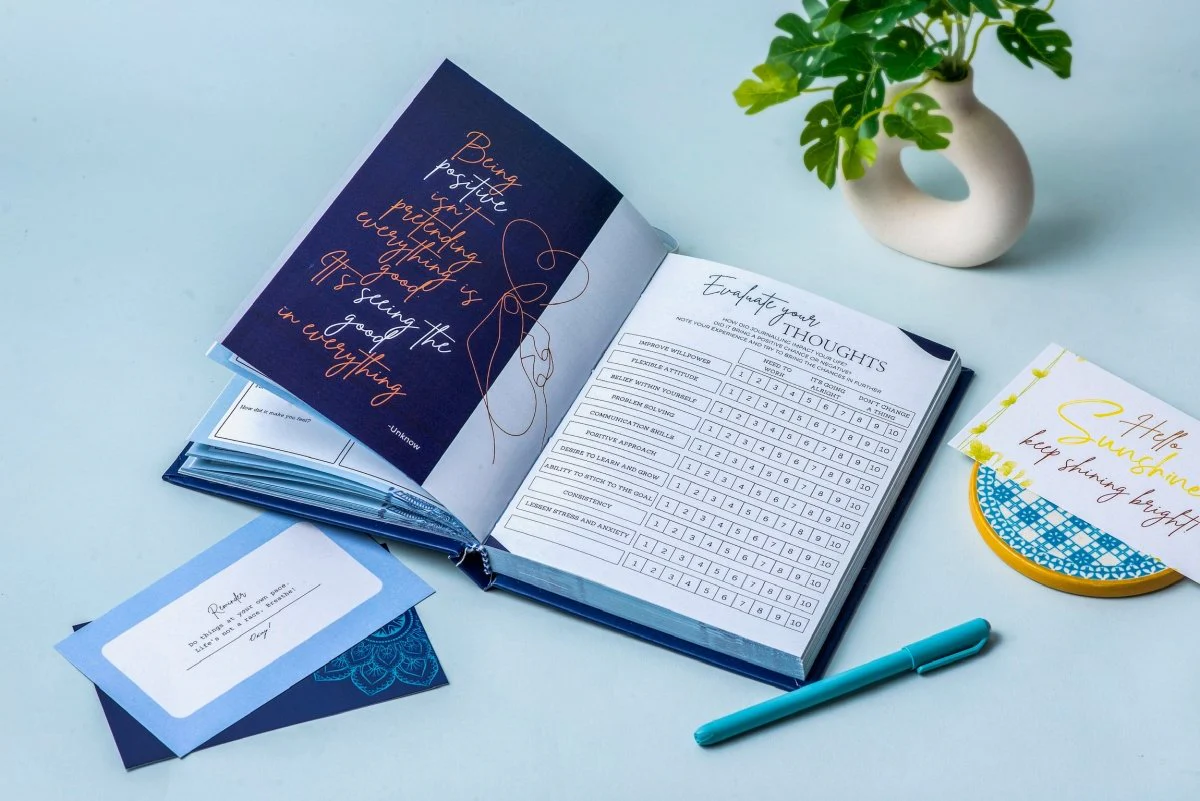 Being
positive
isn't
pretending
everything is
good
It's seeing the
good
in everything
-Unknow
How did it make you feel?
Evaluate your
THOUGHTS
HOW DID JOURNALLING IMPACT YOUR LIFE?
DID IT BRING A POSITIVE CHANGE OR NEGATIVE?
NOTE YOUR EXPERIENCE AND TRY TO BRING THE CHANGES IN FURTHER
NEED TO WORK
IT'S GOING ALRIGHT
DON'T CHANGE A THING
IMPROVE WILLPOWER 1 2 3 4 5 6 7 8 9 10
FLEXIBLE ATTITUDE 1 2 3 4 5 6 7 8 9 10
BELIEF WITHIN YOURSELF 1 2 3 4 5 6 7 8 9 10
PROBLEM SOLVING 1 2 3 4 5 6 7 8 9 10
COMMUNICATION SKILLS 1 2 3 4 5 6 7 8 9 10
POSITIVE APPROACH 1 2 3 4 5 6 7 8 9 10
DESIRE TO LEARN AND GROW 1 2 3 4 5 6 7 8 9 10
ABILITY TO STICK TO THE GOAL 1 2 3 4 5 6 7 8 9 10
CONSISTENCY 1 2 3 4 5 6 7 8 9 10
LESSEN STRESS AND ANXIETY 1 2 3 4 5 6 7 8 9 10
Hello
Sunshine
keep shining bright!
Reminder
Do things at your own pace.
Life's not a race. Breathe!
Okay!